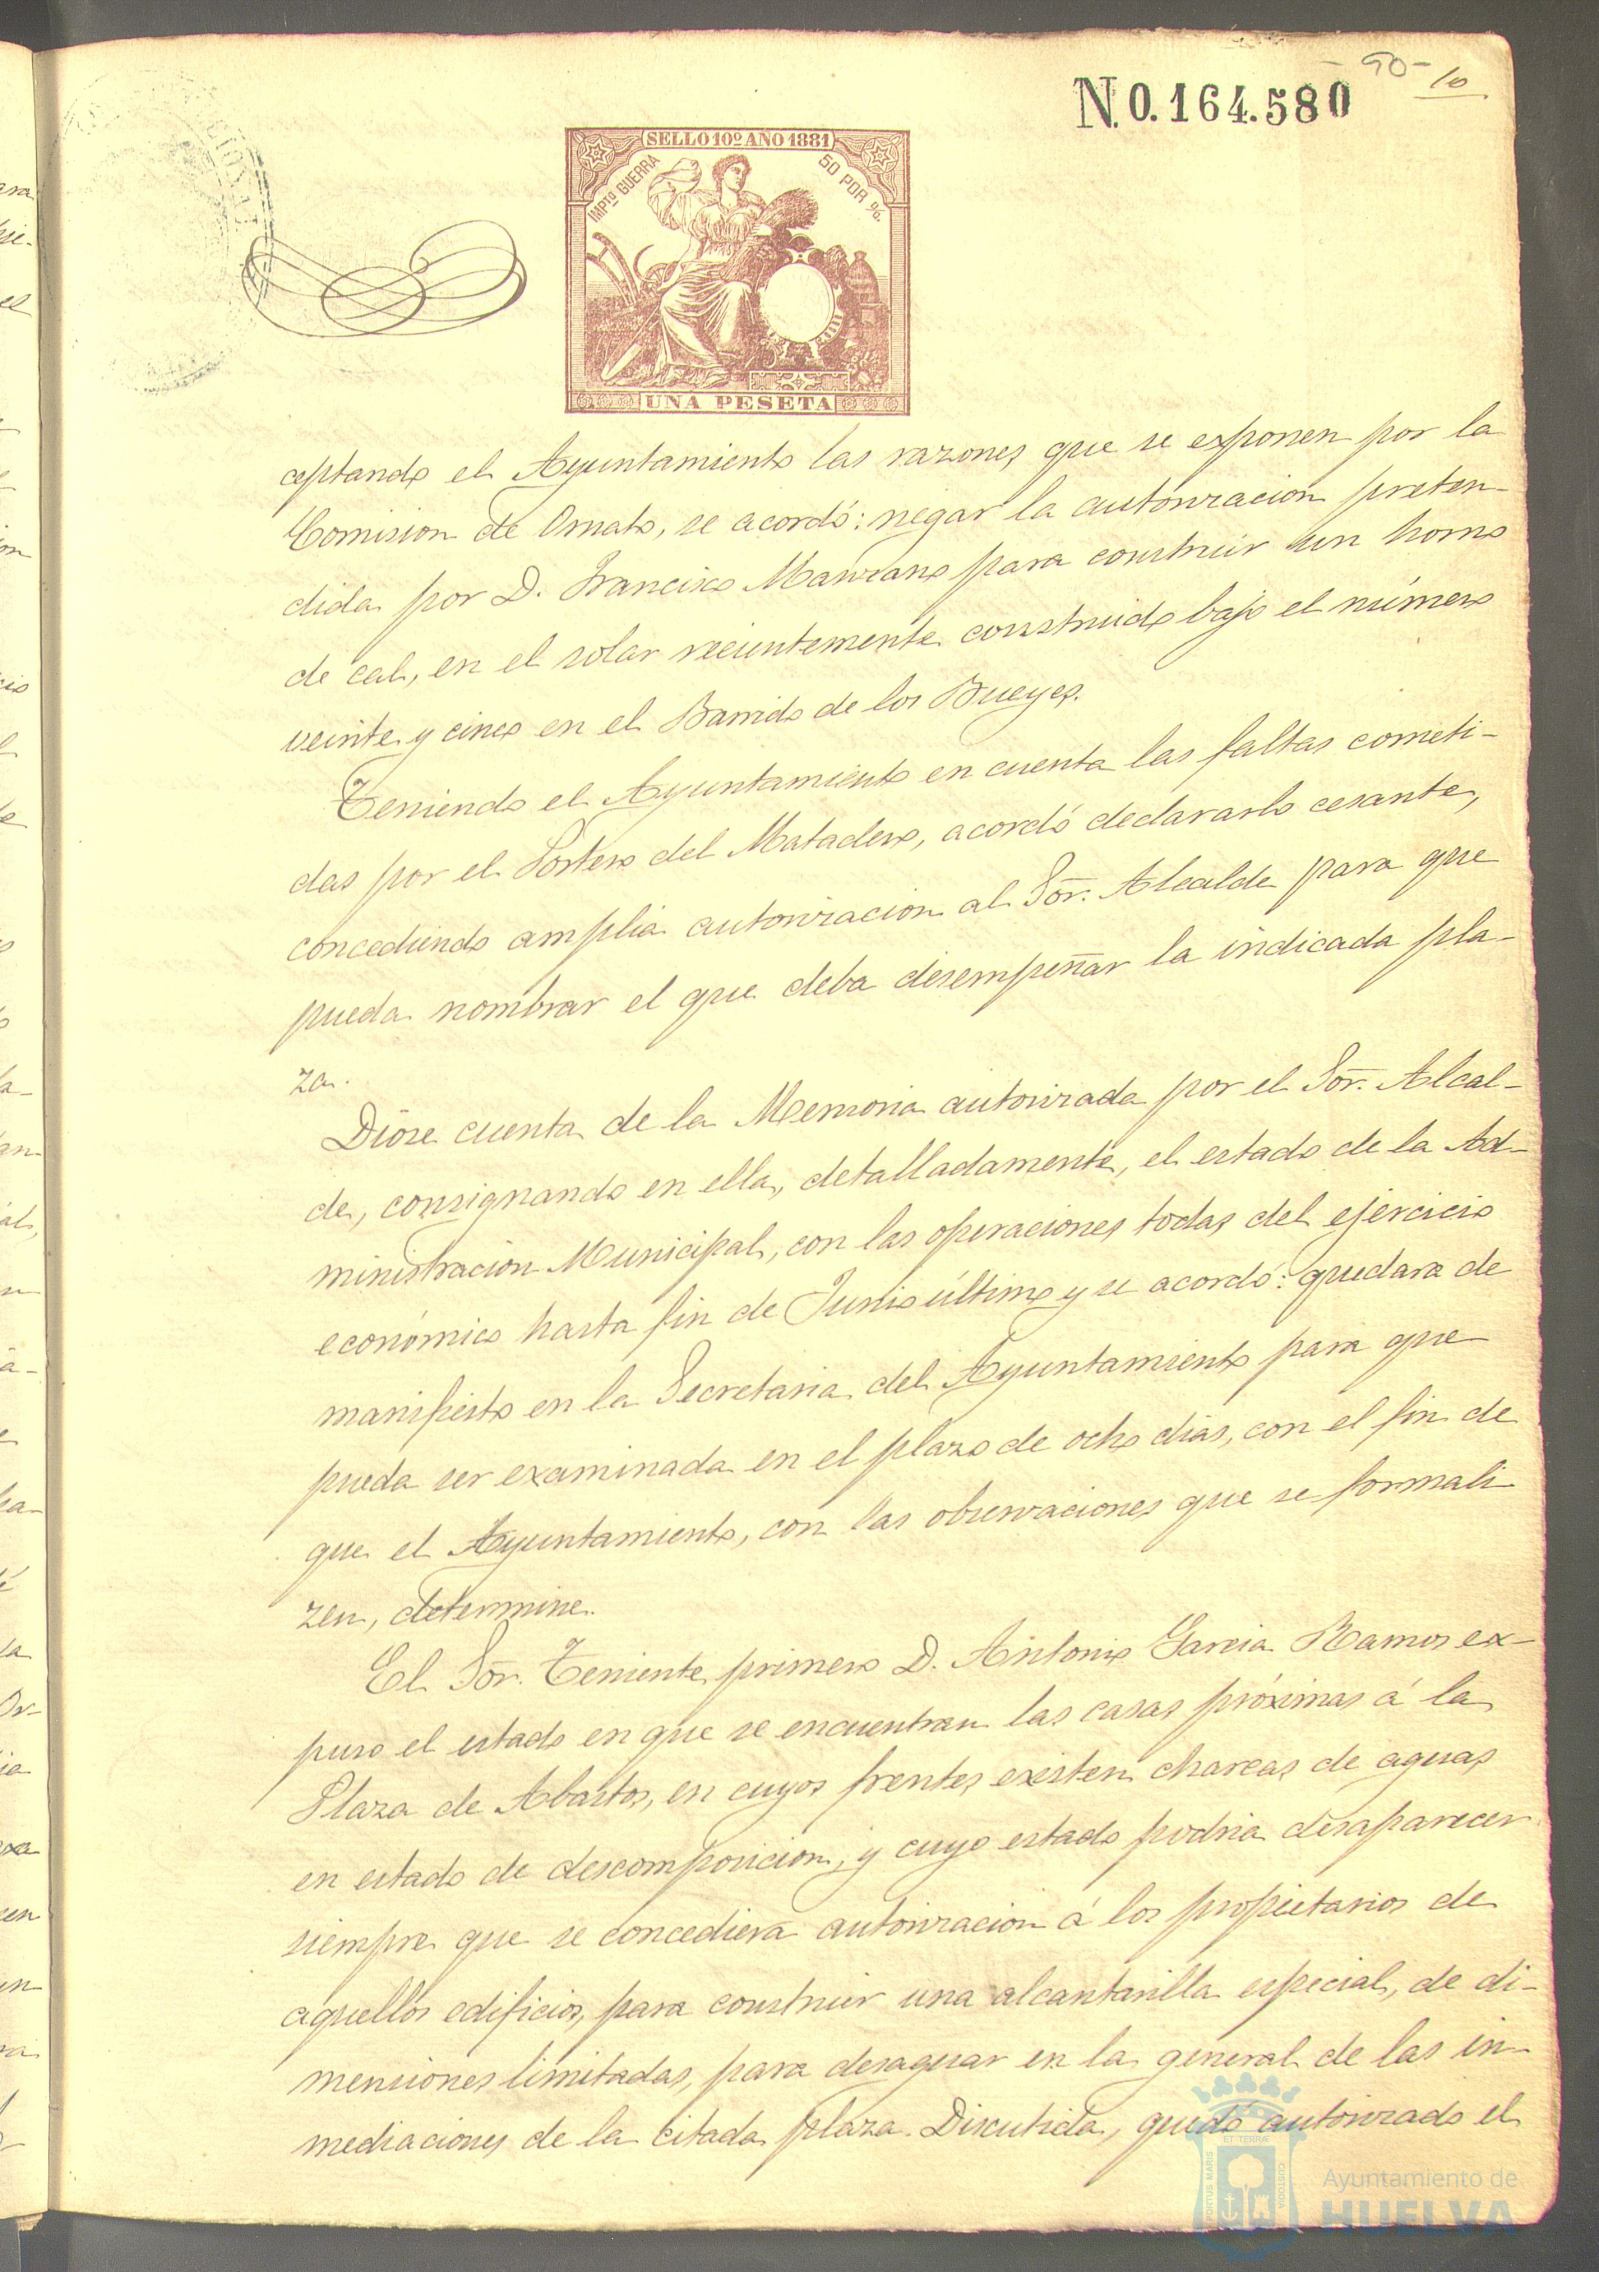 - 90 -
10
N. 0.164.580
SELLO 10º AÑO 1881
IMPTO GUERRA
50 POR %.
UNA PESETA
ceptando el Ayuntamiento las razones que se exponen por la
Comision de Ornato, se acordó: negar la autorizacion preten-
dida por D. Francisco Manzano para construir un horno
de cal, en el solar recientemente construido bajo el número
veinte y cinco en el Barrido de los Bueyes.
Teniendo el Ayuntamiento en cuenta las faltas cometi-
das por el Portero del Matadero, acordó declararlo cesante,
concediendo amplia autorizacion al Sor. Alcalde para que
pueda nombrar el que deba desempeñar la indicada pla-
za.
Dióse cuenta de la Memoria autorizada por el Sor. Alcal-
de, consignando en ella, detalladamente, el estado de la Ad-
ministracion Municipal, con las operaciones todas del ejercicio
económico hasta fin de Junio último y se acordó: quedara de
manifiesto en la Secretaria del Ayuntamiento para que
pueda ser examinada en el plazo de ocho dias, con el fin de
que el Ayuntamiento, con las observaciones que se formali
zen, determine.
El Sor. Teniente primero D. Antonio Garcia Ramos ex-
puso el estado en que se encuentran las casas próximas á la
Plaza de Abastos, en cuyos frentes existen charcas de aguas
en estado de descomposicion, y cuyo estado podria desaparecer
siempre que se concediera autorizacion á los propietarios de
aquellos edificios, para construir una alcantarilla especial, de di-
mensiones limitadas, para desaguar en la general de las in-
mediaciones de la citada plaza. Discutida, quedó autorizado el
PORTUS MARIS
ET TERRÆ
CUSTODIA
Ayuntamiento de
HUELVA